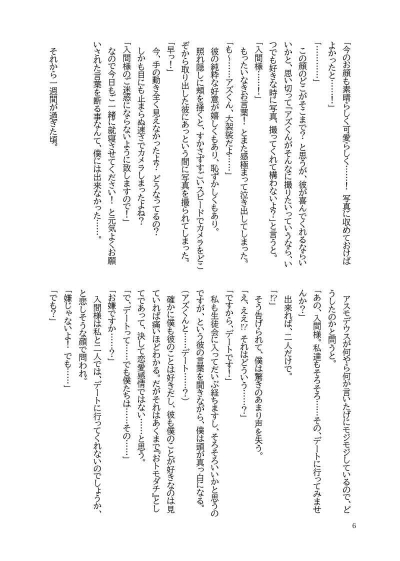 「今のお顔も素晴らしく可愛らしく……！　写真に収めておけば
よかったと……！」
「…………」
　この顔のどこがそこまで？　と思うが、彼が喜んでくれるならい
いかと、思い切って「アズくんがそんなに撮りたいっていうなら、い
つでも好きな時に写真、撮ってくれて構わないよ？」と言うと。
「入間様……！」
　もったいなきお言葉！　とまた感極まって泣き出してしまった。
「も～……アズくん、大袈裟だよ……」
　彼の純粋な好意が嬉しくもあり、恥ずかしくもあり。
　照れ隠しに頬を掻くと、すかさずすごいスピードでカメラをどこ
ぞから取り出した彼にあっという間に写真を撮られてしまった。
「早っ！」
　今、手の動き全く見えなかったよ？　どうなってるの？
　しかも目にも止まらぬ速さでカメラしまったよね？
「入間様のご迷惑にならないように致しますので！」
　なので今日もご一緒に就寝させてください！　と元気よくお願
いされた言葉を断る事なんて、僕には出来なかった……。
　それから一週間が過ぎた頃。
　アスモデウスが何やら何か言いたげにモジモジしているので、ど
うしたのかと問うと、
「あの、入間様、私達もそろそろ……その、デートに行ってみませ
んか？」
　出来れば、二人だけで。
「!?」
　そう告げられて、僕は驚きのあまり声を失う。
「え、ええ!?　それはどういう……？」
「ですから、デートです！」
　私も生徒会に入ってだいぶ経ちますし、そろそろいいかと思うの
ですが、という彼の言葉を聞きながら、僕は頭が真っ白になる。
（アズくんと……デート……？）
　確かに僕も彼のことは好きだし、彼も僕のことが好きなのは見
ていれば痛いほどわかる。だがそれはあくまで『おトモダチ』とし
てであって、決して恋愛感情ではない……と思う。
「で、デートって……でも僕たちは……その……」
「お嫌ですか……？」
　入間様は私と二人では、デートに行ってくれないのでしょうか、
と悲しそうな顔で問われ。
「嫌じゃないよ！　でも……」
「でも？」
6